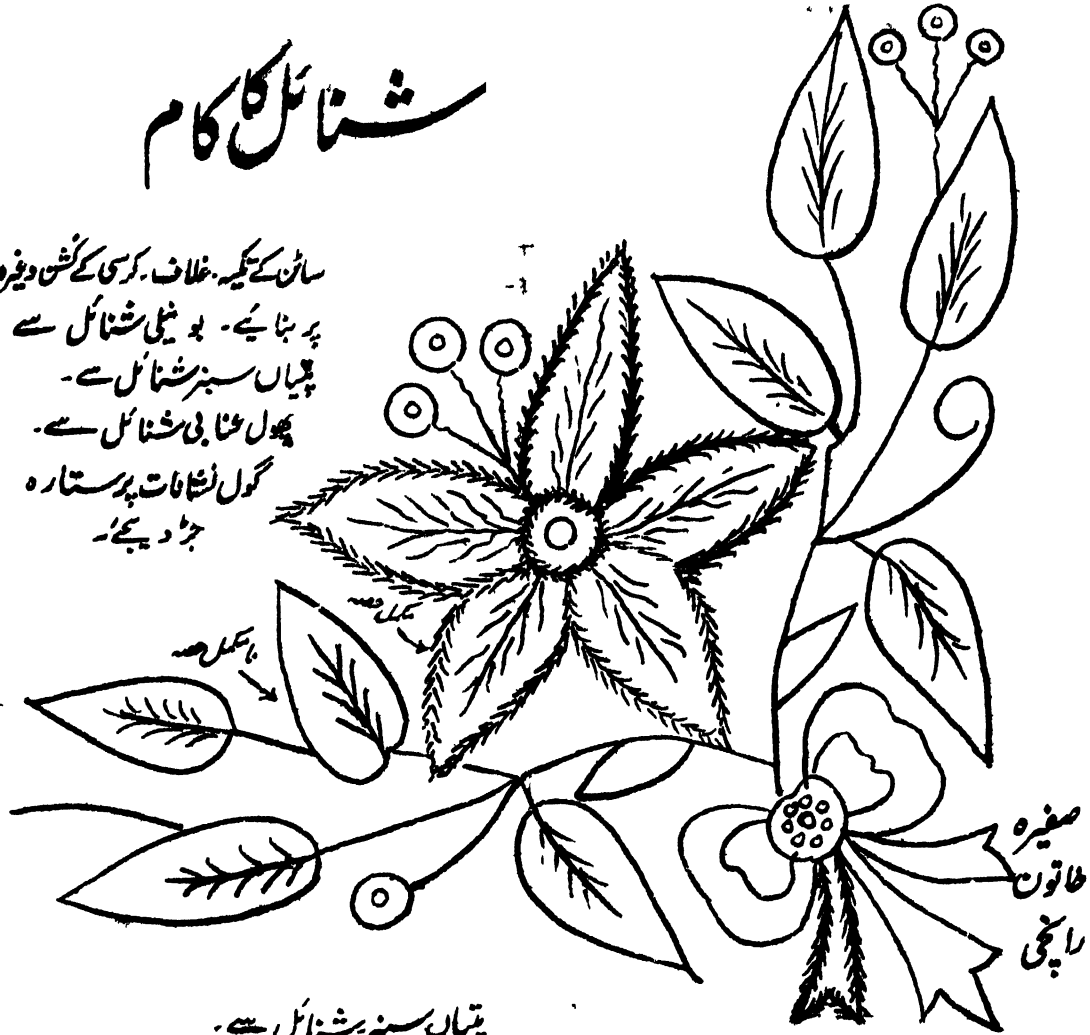 شنائل کا کام
ساٹن کے تکیہ۔ غلاف۔ کرسی کے کُشن وغیرہ
پر بنائیے۔ بو نیلی شنائل سے
پتیاں سبز شنائل سے۔
پھول عنابی شنائل سے۔
گول نشانات پر ستارہ
جڑ دیجئے۔
مکمل حصہ
نامکمل حصہ
صفیرہ
خاتون
رانچی
پتیاں سبز شنائل سے۔